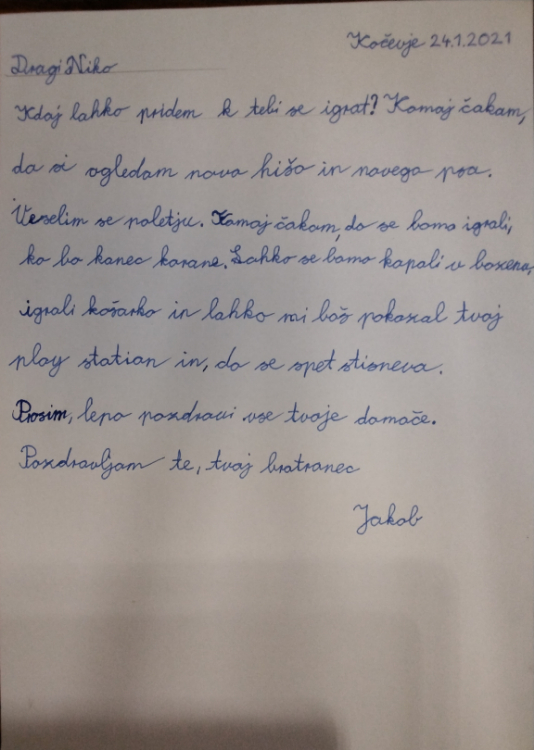 Kočevje 24.1.2021
Dragi Niko
Kdaj lahko pridem k tebi se igrat? Komaj čakam,
da si ogledam novo hišo in novega psa.
Veselim se poletju. Komaj čakam, da se bomo igrali,
ko bo konec korone. Lahko se bomo kopali v bazenu,
igrali košarko in lahko mi boš pokazal tvoj
play station in, da se spet stisneva.
Prosim, lepo pozdravi vse tvoje domače.
Pozdravljam te, tvoj bratranec
Jakob